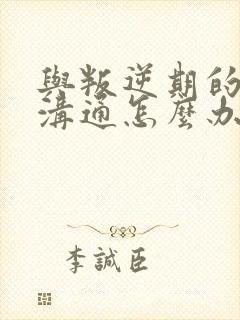 與叛逆期的
溝通怎麼办
李誠臣